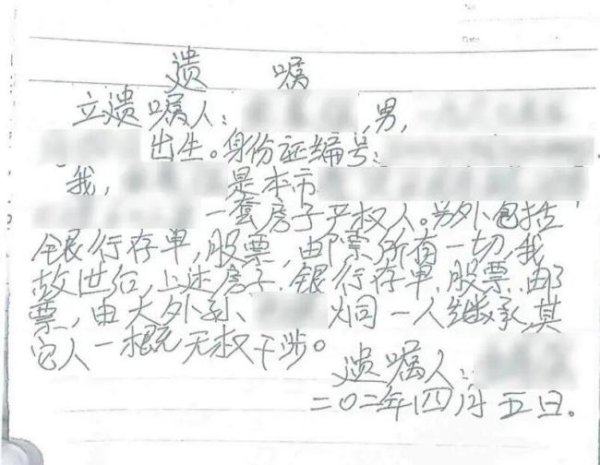 遗嘱
立遗嘱人：,男,
出生。身份证编号:
我,是本市
一套房子产权人。另外包括
银行存单,股票,邮票所有一切,我
故世后,上述房子、银行存单、股票、邮
票,由大外孙、一人继承,其
它人一概无权干涉。
遗嘱人：
二〇二年四月五日。